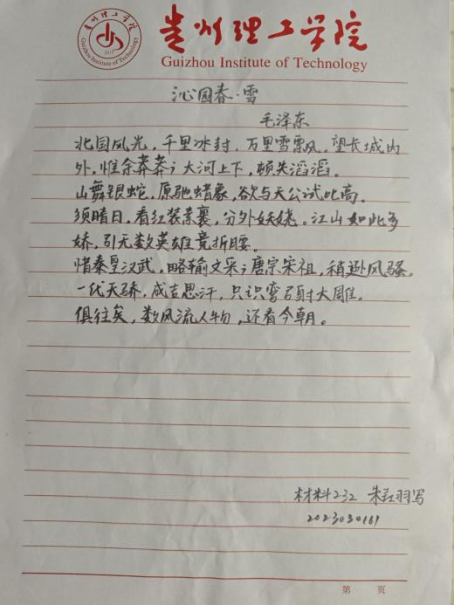 贵州理工学院
Guizhou Institute of Technology
沁园春·雪
毛泽东
北国风光，千里冰封，万里雪飘。望长城内
外，惟余莽莽；大河上下，顿失滔滔。
山舞银蛇，原驰蜡象，欲与天公试比高。
须晴日，看红装素裹，分外妖娆。江山如此多
娇，引无数英雄竞折腰。
惜秦皇汉武，略输文采；唐宗宋祖，稍逊风骚。
一代天骄，成吉思汗，只识弯弓射大雕。
俱往矣，数风流人物，还看今朝。
材料232
写
第 页